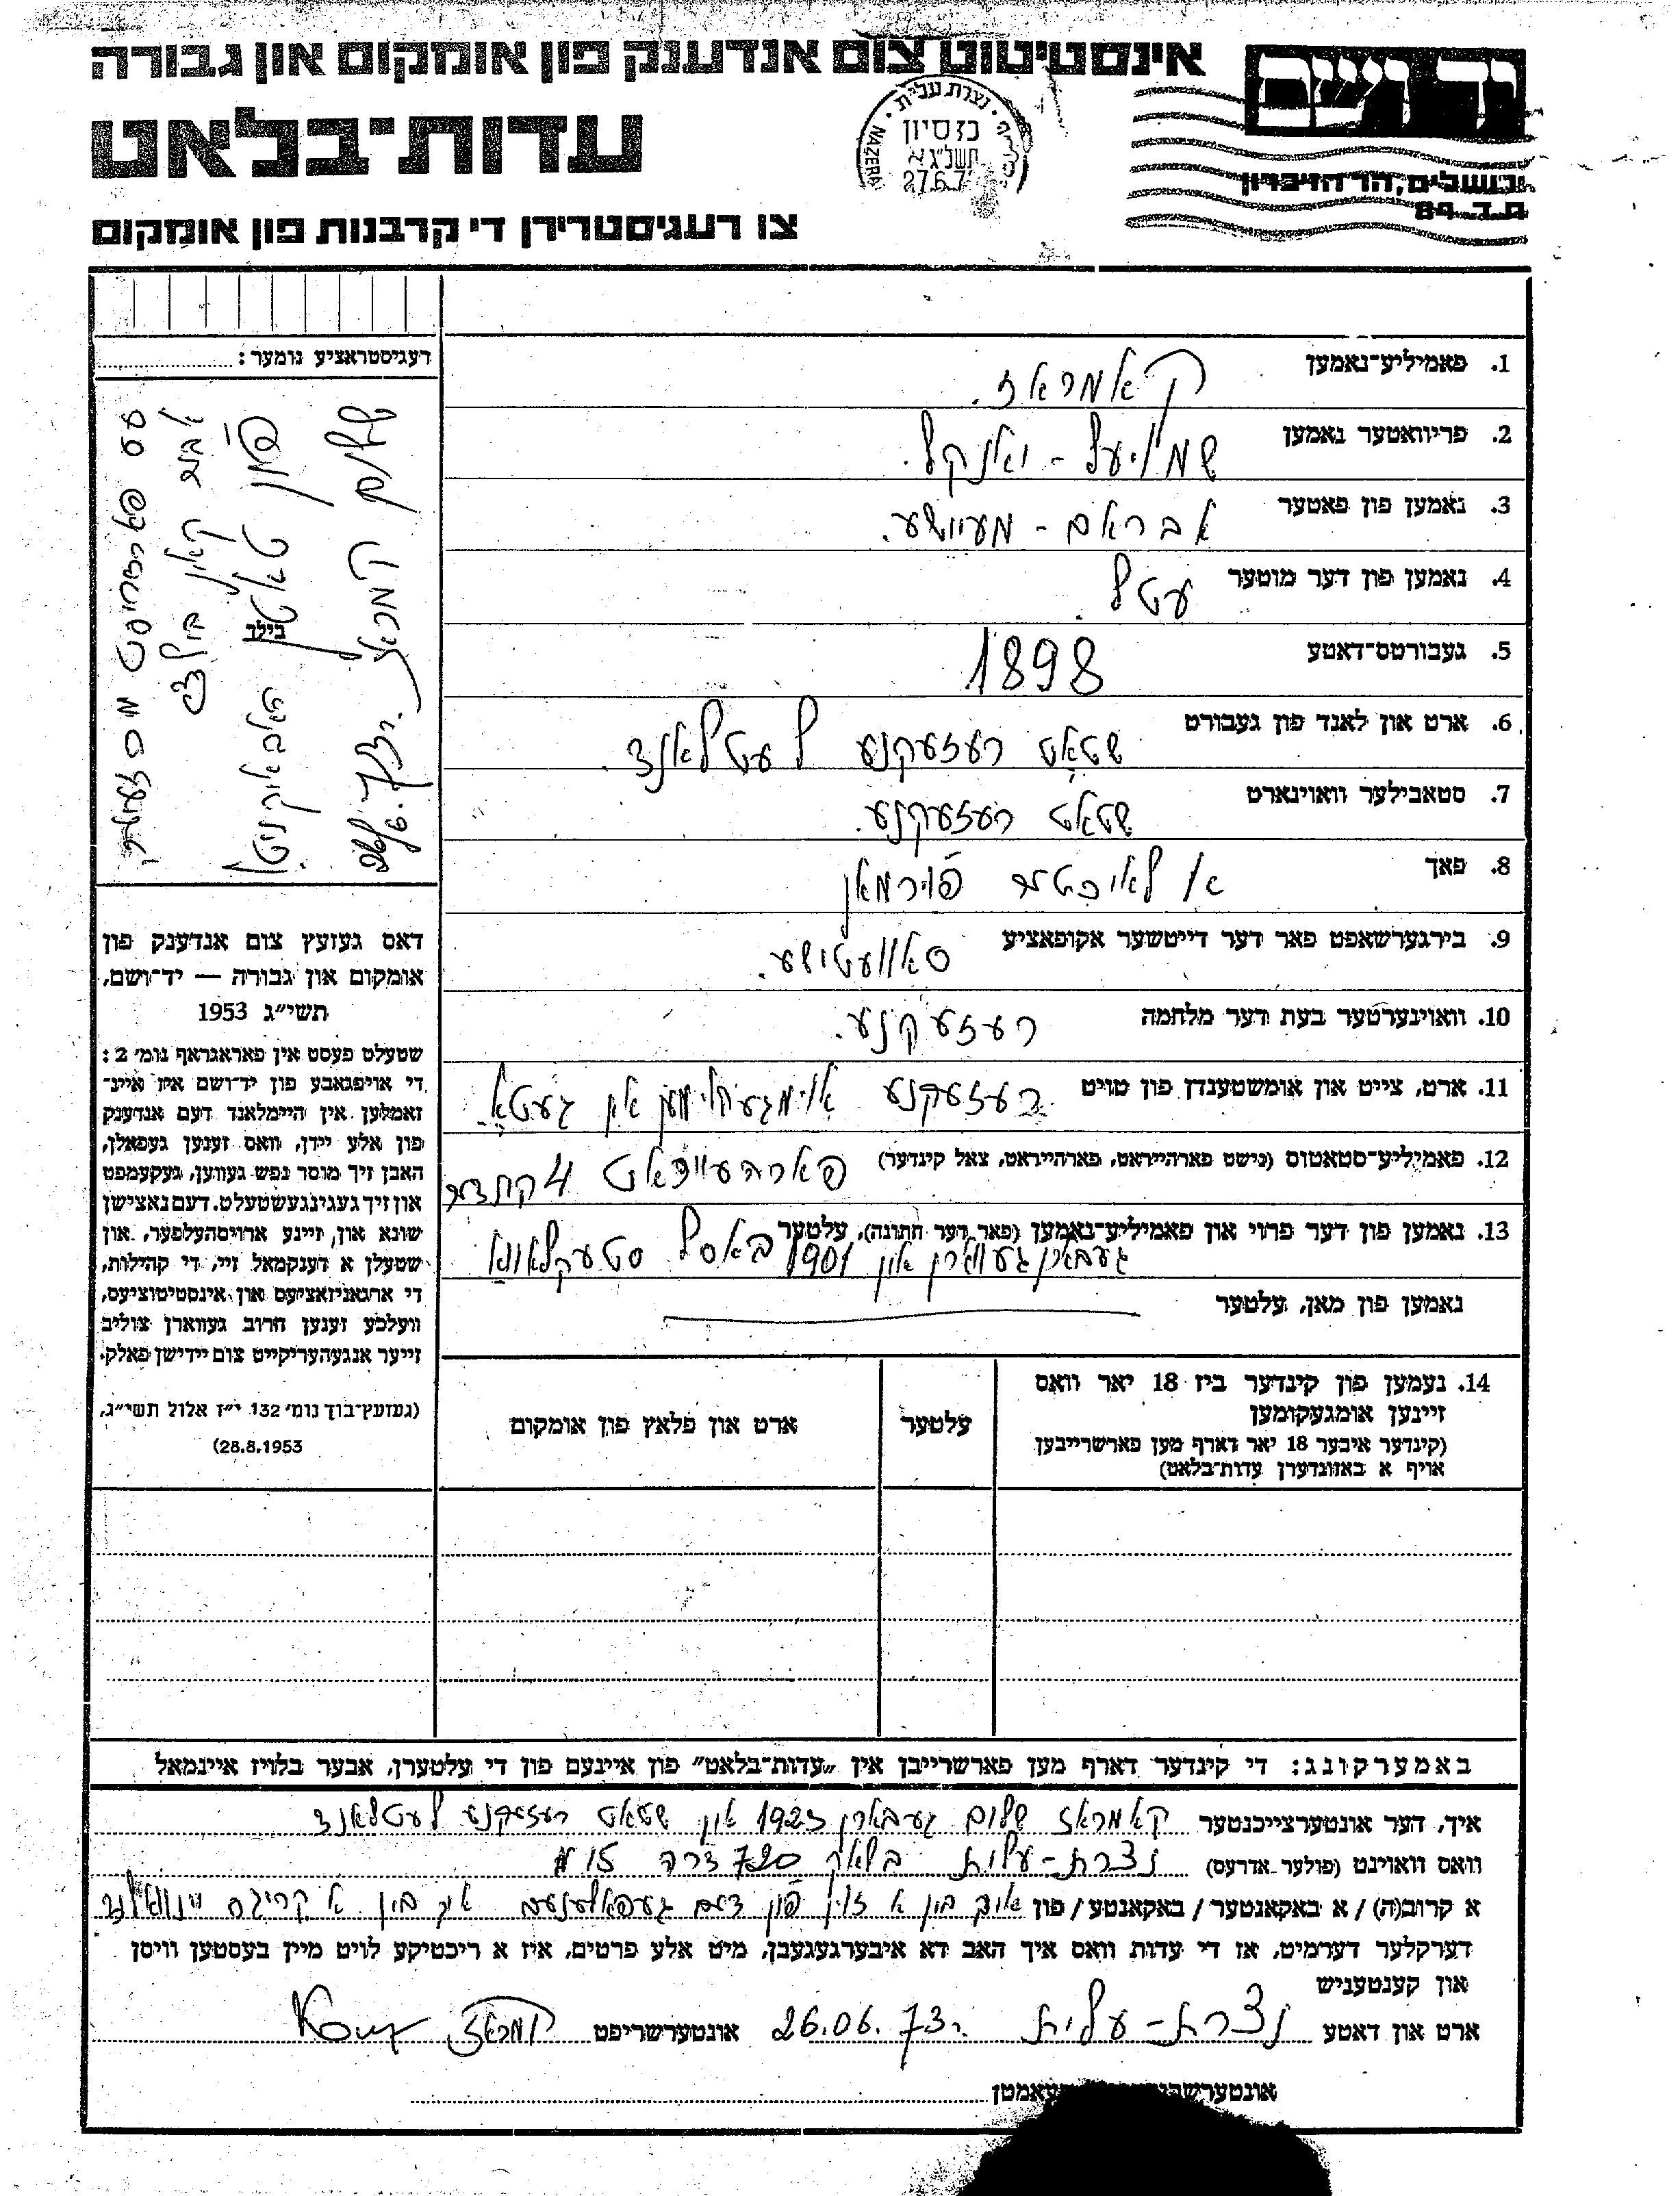 אינסטיטוט צום אנדענק פון אומקום און גבורה
יד ושם
עדות־בלאט
נצרת עלית
כז סיון
תשל״ג
27.6.7
NAZERA
ירושלים, הר הזיכרון
ת.ד. 84
צו רעגיסטרירן די קרבנות פון אומקום
רעגיסטראציע נומער:
1. פאמיליע־נאמען קאמראז.
2. פריוואטער נאמען שמויעל - יאנקל.
3. נאמען פון פאטער אבראם - מעיישע.
4. נאמען פון דער מוטער עטל.
5. געבורטס־דאטע 1898
6. ארט און לאנד פון געבורט שטאט רעזעקנע לעטלאנד.
7. סטאבילער וואוינארט שטאט רעזעקנע.
8. פאך
9. בירגערשאפט פאר דער דייטשער אקופאציע סאוועטישע.
10. וואוינערטער בעת דער מלחמה רעזעקנע.
11. ארט, צייט און אומשטענדן פון טויט רעזעקנע אומגעקומען אין געטא.
12. פאמיליע־סטאטוס (נישט פארהייראט, פארהייראט, צאל קינדער) 4
13. נאמען פון דער פרוי און פאמיליע־נאמען (פאר דער חתונה), עלטער
געבארן געווארן אין 1901 באסל
נאמען פון מאן, עלטער
14. נעמען פון קינדער ביז 18 יאר וואס
זיינען אומגעקומען
(קינדער איבער 18 יאר דארף מען פארשרייבן
אויף א באזונדערן עדות־בלאט)
עלטער
ארט און פלאץ פון אומקום
בילד
פון טאטן
שלום קמראז
דאס געזעץ צום אנדענק פון
אומקום און גבורה — יד־ושם,
תשי״ג 1953
שטעלט פעסט אין פאראגראף נומ׳ 2:
די אויפגאבע פון יד־ושם איז איינ־
זאמלען אין היימלאנד דעם אנדענק
פון אלע יידן, וואס זענען געפאלן,
האבן זיך מוסר נפש געווען, געקעמפט
און זיך געגינגעשטעלט. דעם נאצישן
שונא און זיינע ארויסהעלפער, און
שטעלן א דענקמאל זיי, די קהילות,
די ארגאניזאציעס און אינסטיטוציעס,
וועלכע זענען חרוב געווארן צוליב
זייער אנגעהעריקייט צום יידישן פאלק.
(געזעץ־בוך נומ׳ 132 י״ז אלול תשי״ג,
28.8.1953)
באמערקונג: די קינדער דארף מען פארשרייבן אין „עדות־בלאט״ פון איינעם פון די עלטערן, אבער בלויז איינמאל
איך, דער אונטערצייכנטער קאמראז שלום געבארן 1923 אין שטאט רעזעקנע לעטלאנד
וואס וואוינט (פולער אדרעס) נצרת - עלית בלאק 720 דרה 15
א קרוב(ה) / א באקאנטער / באקאנטע / פון איך בין א זוין פון דעם איך בין א קריגס
דערקלער דערמיט, אז די עדות וואס איך האב דא איבערגעגעבן, מיט אלע פרטים, איז א ריכטיקע לויט מיין בעסטען וויסן
און קענטעניש
ארט און דאטע נצרת - עלית 26.06.73 אונטערשריפט קמראז